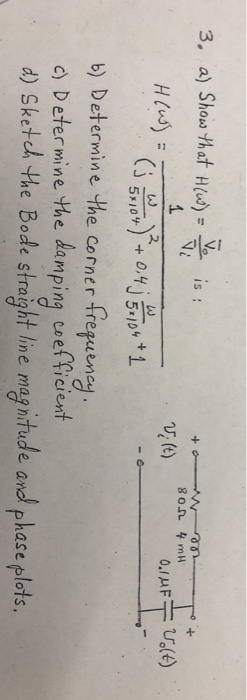 3. a) Show that H(ω) = V̄o/V̄i is :
H(ω) = 1 / ((j ω/5×10⁴)² + 0.4j ω/5×10⁴ + 1)
b) Determine the corner frequency.
c) Determine the damping coefficient
d) Sketch the Bode straight line magnitude and phase plots.
+ +
80Ω 4mH
vi(t) 0.1μF vo(t)
- -